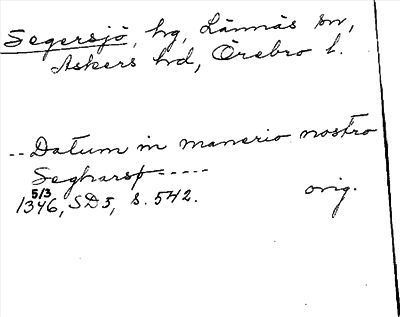 Segersjö, hg, Lännäs sn,
Askers hd, Örebro l.
-- Datum in manerio nostro
Segharsø -----
5/3
1346, SD5, s. 542. orig.